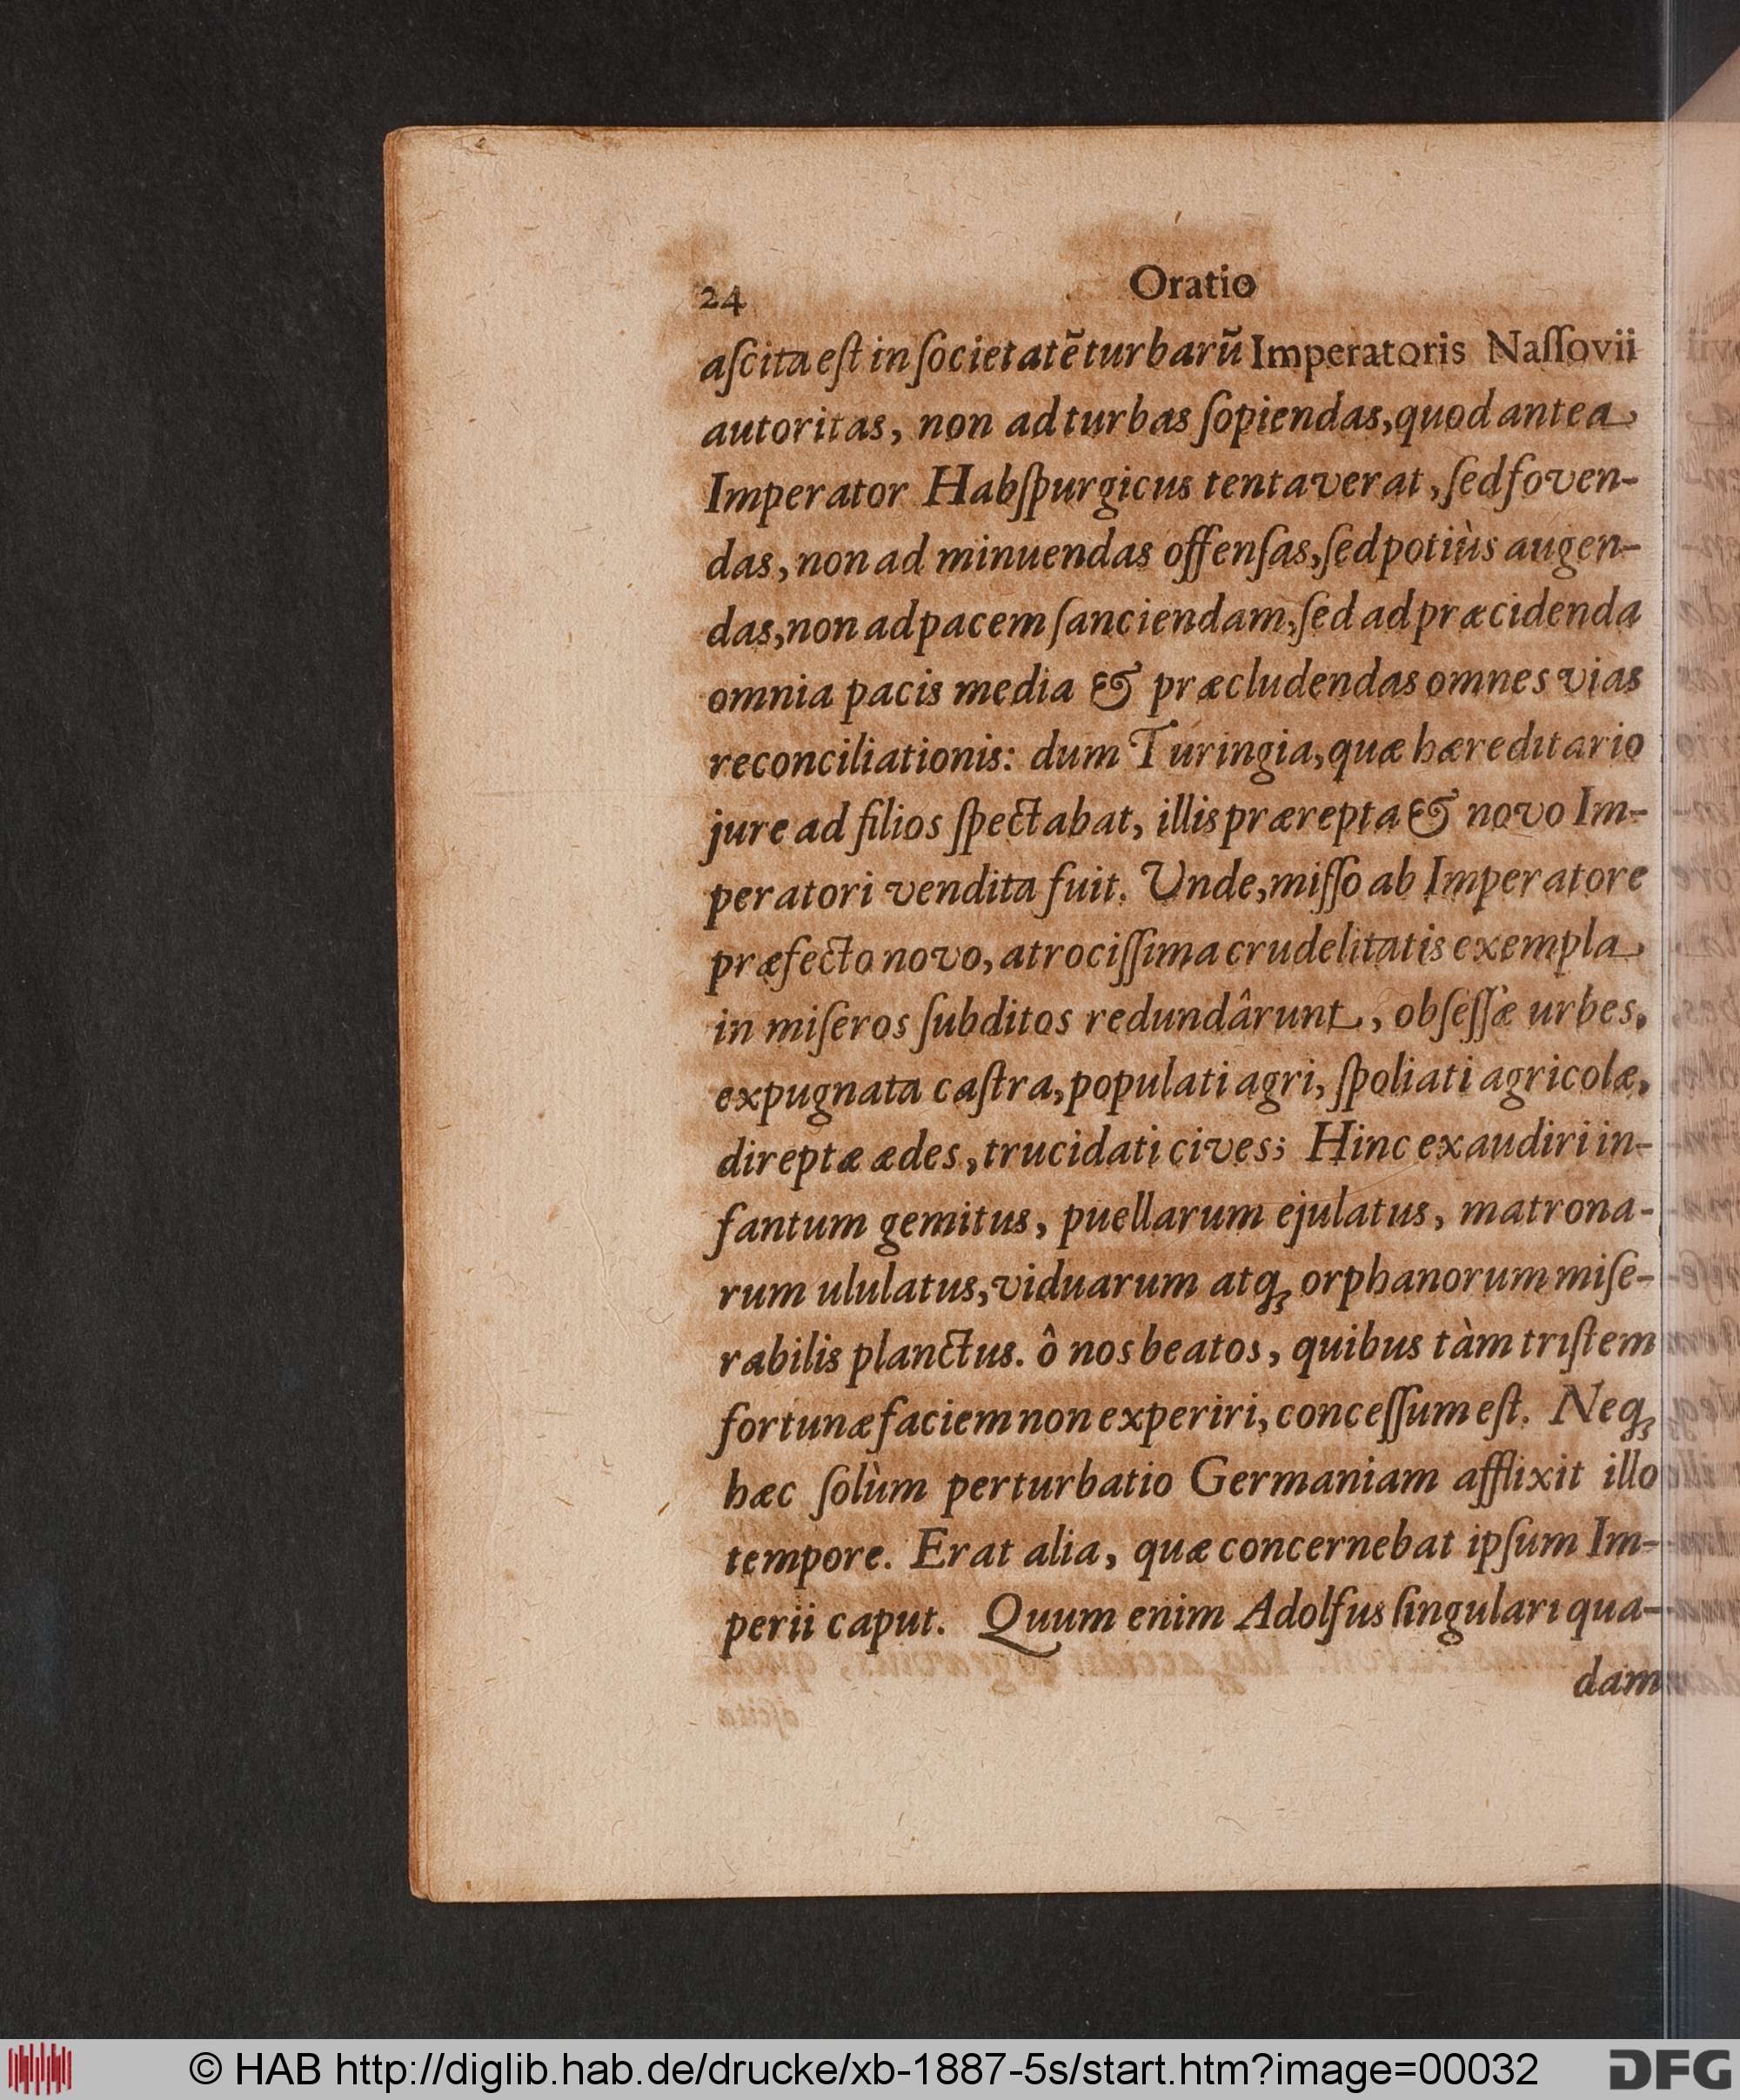 24 Oratio
aſcita eſt in ſocietatē turbarū Imperatoris Naſſovii
autoritas, non ad turbas ſopiendas, quod antea
Imperator Habſpurgicus tentaverat, ſed foven-
das, non ad minuendas offenſas, ſed potiùs augen-
das, non ad pacem ſanciendam, ſed ad præcidenda
omnia pacis media & præcludendas omnes vias
reconciliationis: dum Turingia, quæ hæreditario
jure ad filios ſpectabat, illis prærepta & novo Im-
peratori vendita fuit. Unde, miſſo ab Imperatore
præfecto novo, atrociſſima crudelitatis exempla
in miſeros ſubditos redundârunt, obſeſſæ urbes,
expugnata caſtra, populati agri, ſpoliati agricolæ,
direptæ ædes, trucidati cives; Hinc exaudiri in-
fantum gemitus, puellarum ejulatus, matrona-
rum ululatus, viduarum atq; orphanorum miſe-
rabilis planctus. ô nos beatos, quibus tàm triſtem
fortunæ faciem non experiri, conceſſum eſt. Neq;
hæc ſolùm perturbatio Germaniam afflixit illo
tempore. Erat alia, quæ concernebat ipſum Im-
perii caput. Quum enim Adolfus ſingulari qua-
dam
© HAB http://diglib.hab.de/drucke/xb-1887-5s/start.htm?image=00032
DFG